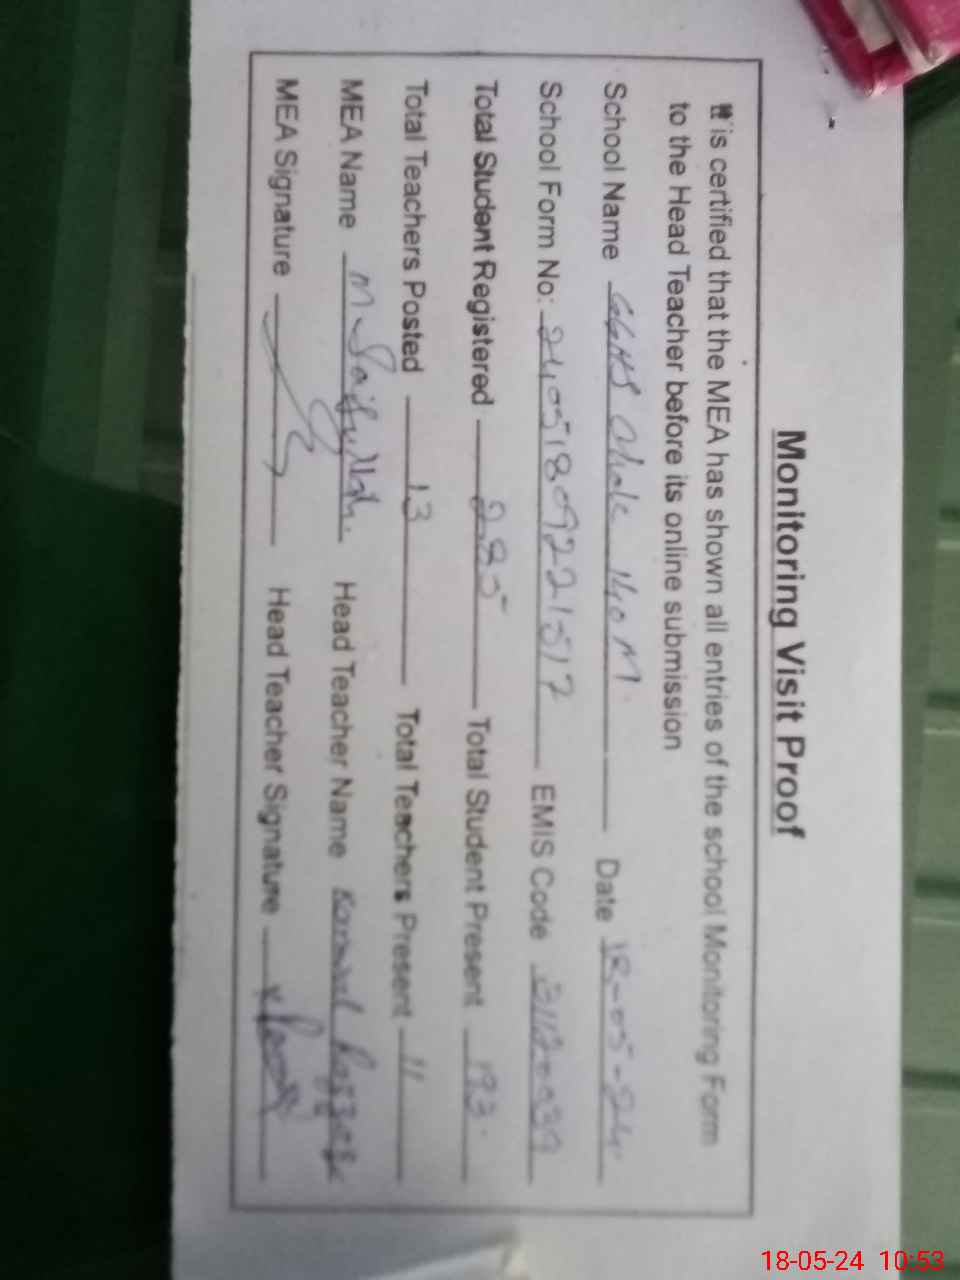 Monitoring Visit Proof
It is certified that the MEA has shown all entries of the school Monitoring Form
to the Head Teacher before its online submission
School Name GGHS Chak 140 M. Date 18-05-24
School Form No: 24051809221517 EMIS Code
Total Student Registered 285 Total Student Present 193
Total Teachers Posted 13 Total Teachers Present 11
MEA Name M Saifullah. Head Teacher Name
MEA Signature Head Teacher Signature
18-05-24 10:53